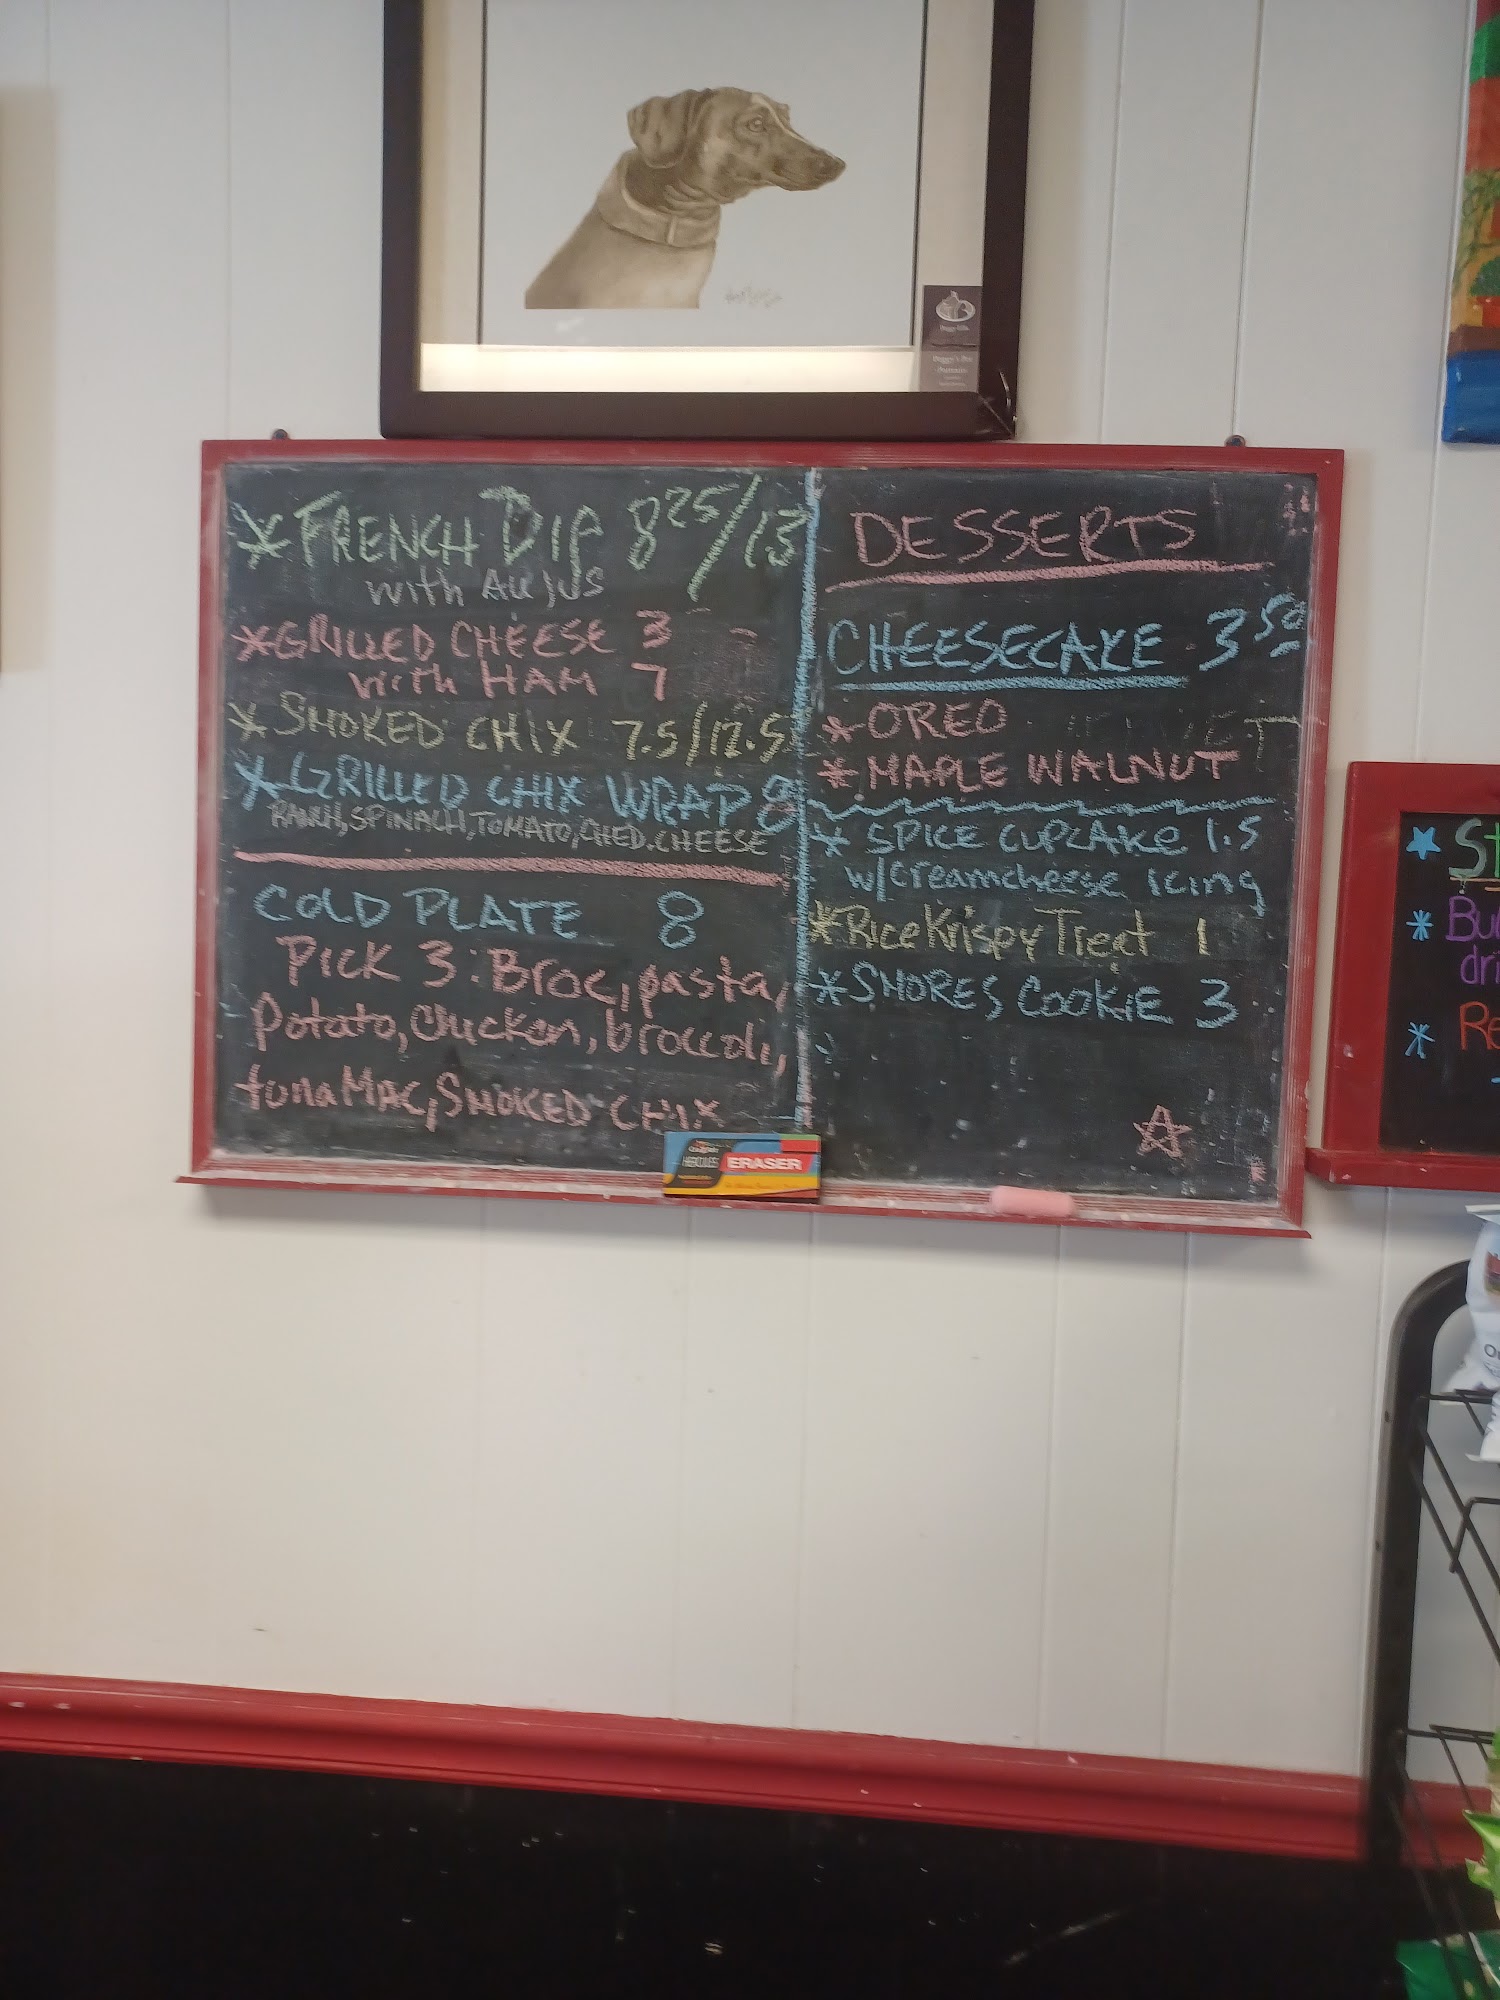 *FRENCH DIP 8 25/13
with AU JUS
*GRILLED CHEESE 3
with HAM 7
*SMOKED CHIX 7.5/12.5
*GRILLED CHIX WRAP 8
RANCH, SPINACH, TOMATO, CHED. CHEESE
COLD PLATE 8
PICK 3: Broc, pasta,
Potato, Chicken, broccoli,
tuna MAC, SMOKED CHIX
DESSERTS
CHEESECAKE 3 50
*OREO
*MAPLE WALNUT
* SPICE CUPCAKE 1.5
w/creamcheese icing
*Rice Krispy Treat 1
*SMORES COOKIE 3
HERCULES
ERASER
* 
* 
* Re